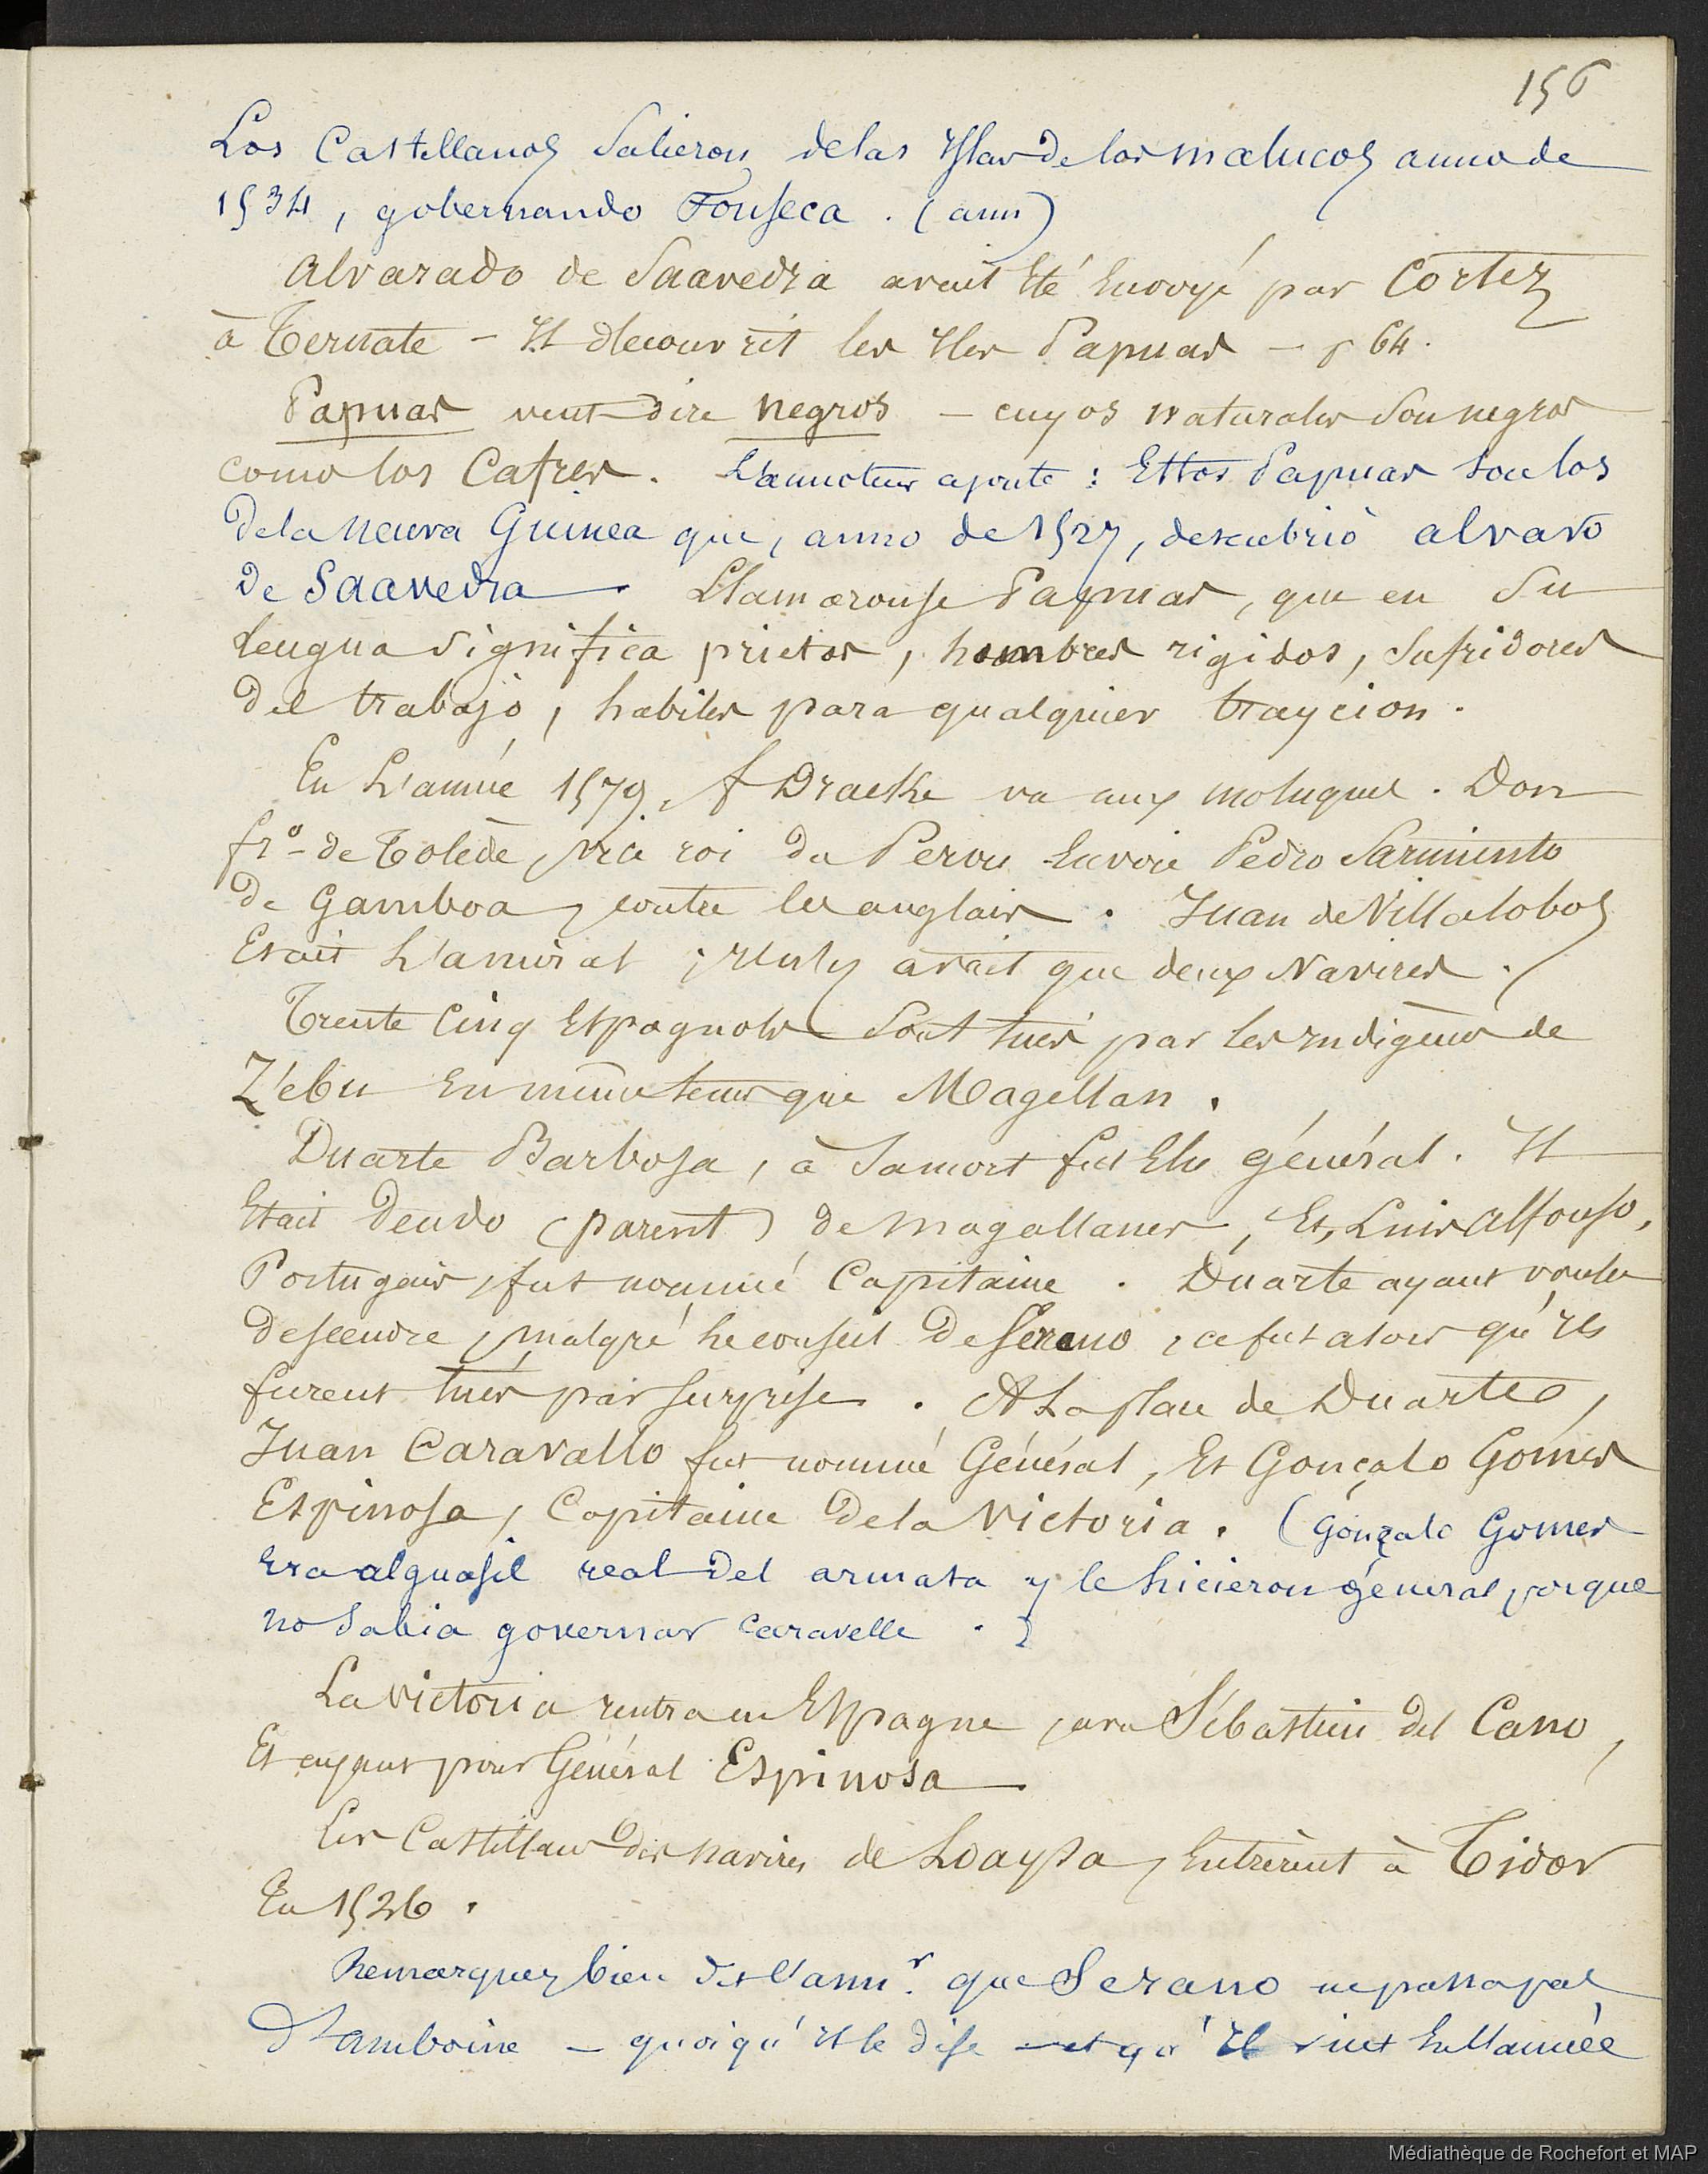 156
Los Castellanos Salieron de las Yslas de los malucos anno de
1534, gobernando Fonseca. (ann)
Alvarado de Saavedra avait Eté Envoyé par Cortez
à Ternate - Il decouvrit les Iles Papuas - p 64.
Papuas veut dire negros - cuyos naturales Son negros
como los Cafres. L'annoteur ajoute : Estos Papuas son los
de la neuva Guinea que, anno de 1527, descubriò alvaro
de Saavedra. Llamaronse Papuas, que en Su
lengua significa prietos, hombres rigidos, Sufridores
del trabajo, habiles para qualquier traycion.
En L'année 1579, f Dracke va aux moluques. Don
fro de Tolède, vice roi du Perou Envoie Pedro Sarmiento
de Gamboa, contre les anglais. Juan de Villalobos
Etait L'amiral ; Il n'y avait que deux Navires.
Trente Cinq Espagnols Sont tués par les Indigènes de
Zébu En même tems que Magellan.
Duarte Barbosa, à Sa mort fut Elu général. Il
Etait Deudo (parent) de Magallanes, Et, Luis Alfonso,
Portugais, fut nommé Capitaine. Duarte ayant voulu
descendre, malgré le conseil de Serano, ce fut alors qu'ils
furent tués par surprise. A La place de Duarte,
Juan Caravallo fut nommé Général, Et Gonçalo Gómes
Espinosa, Capitaine de la Victoria. (Gónzalo Gomes
Era alguasil real del armata y le hicieron géneral porque
no Sabia governar caravelle.)
La victoria rentra en Espagne, avec Sébastien del Cano,
Et ayant pour Général Espinosa.
Les Castillans des navires de Loaysa, Entrèrent à Tidor
En 1526.
Remarquez bien dit l'annr. que Serano ne passa pas
D'Amboine - quoiqu'il le dise - et qu'il vint En l'année